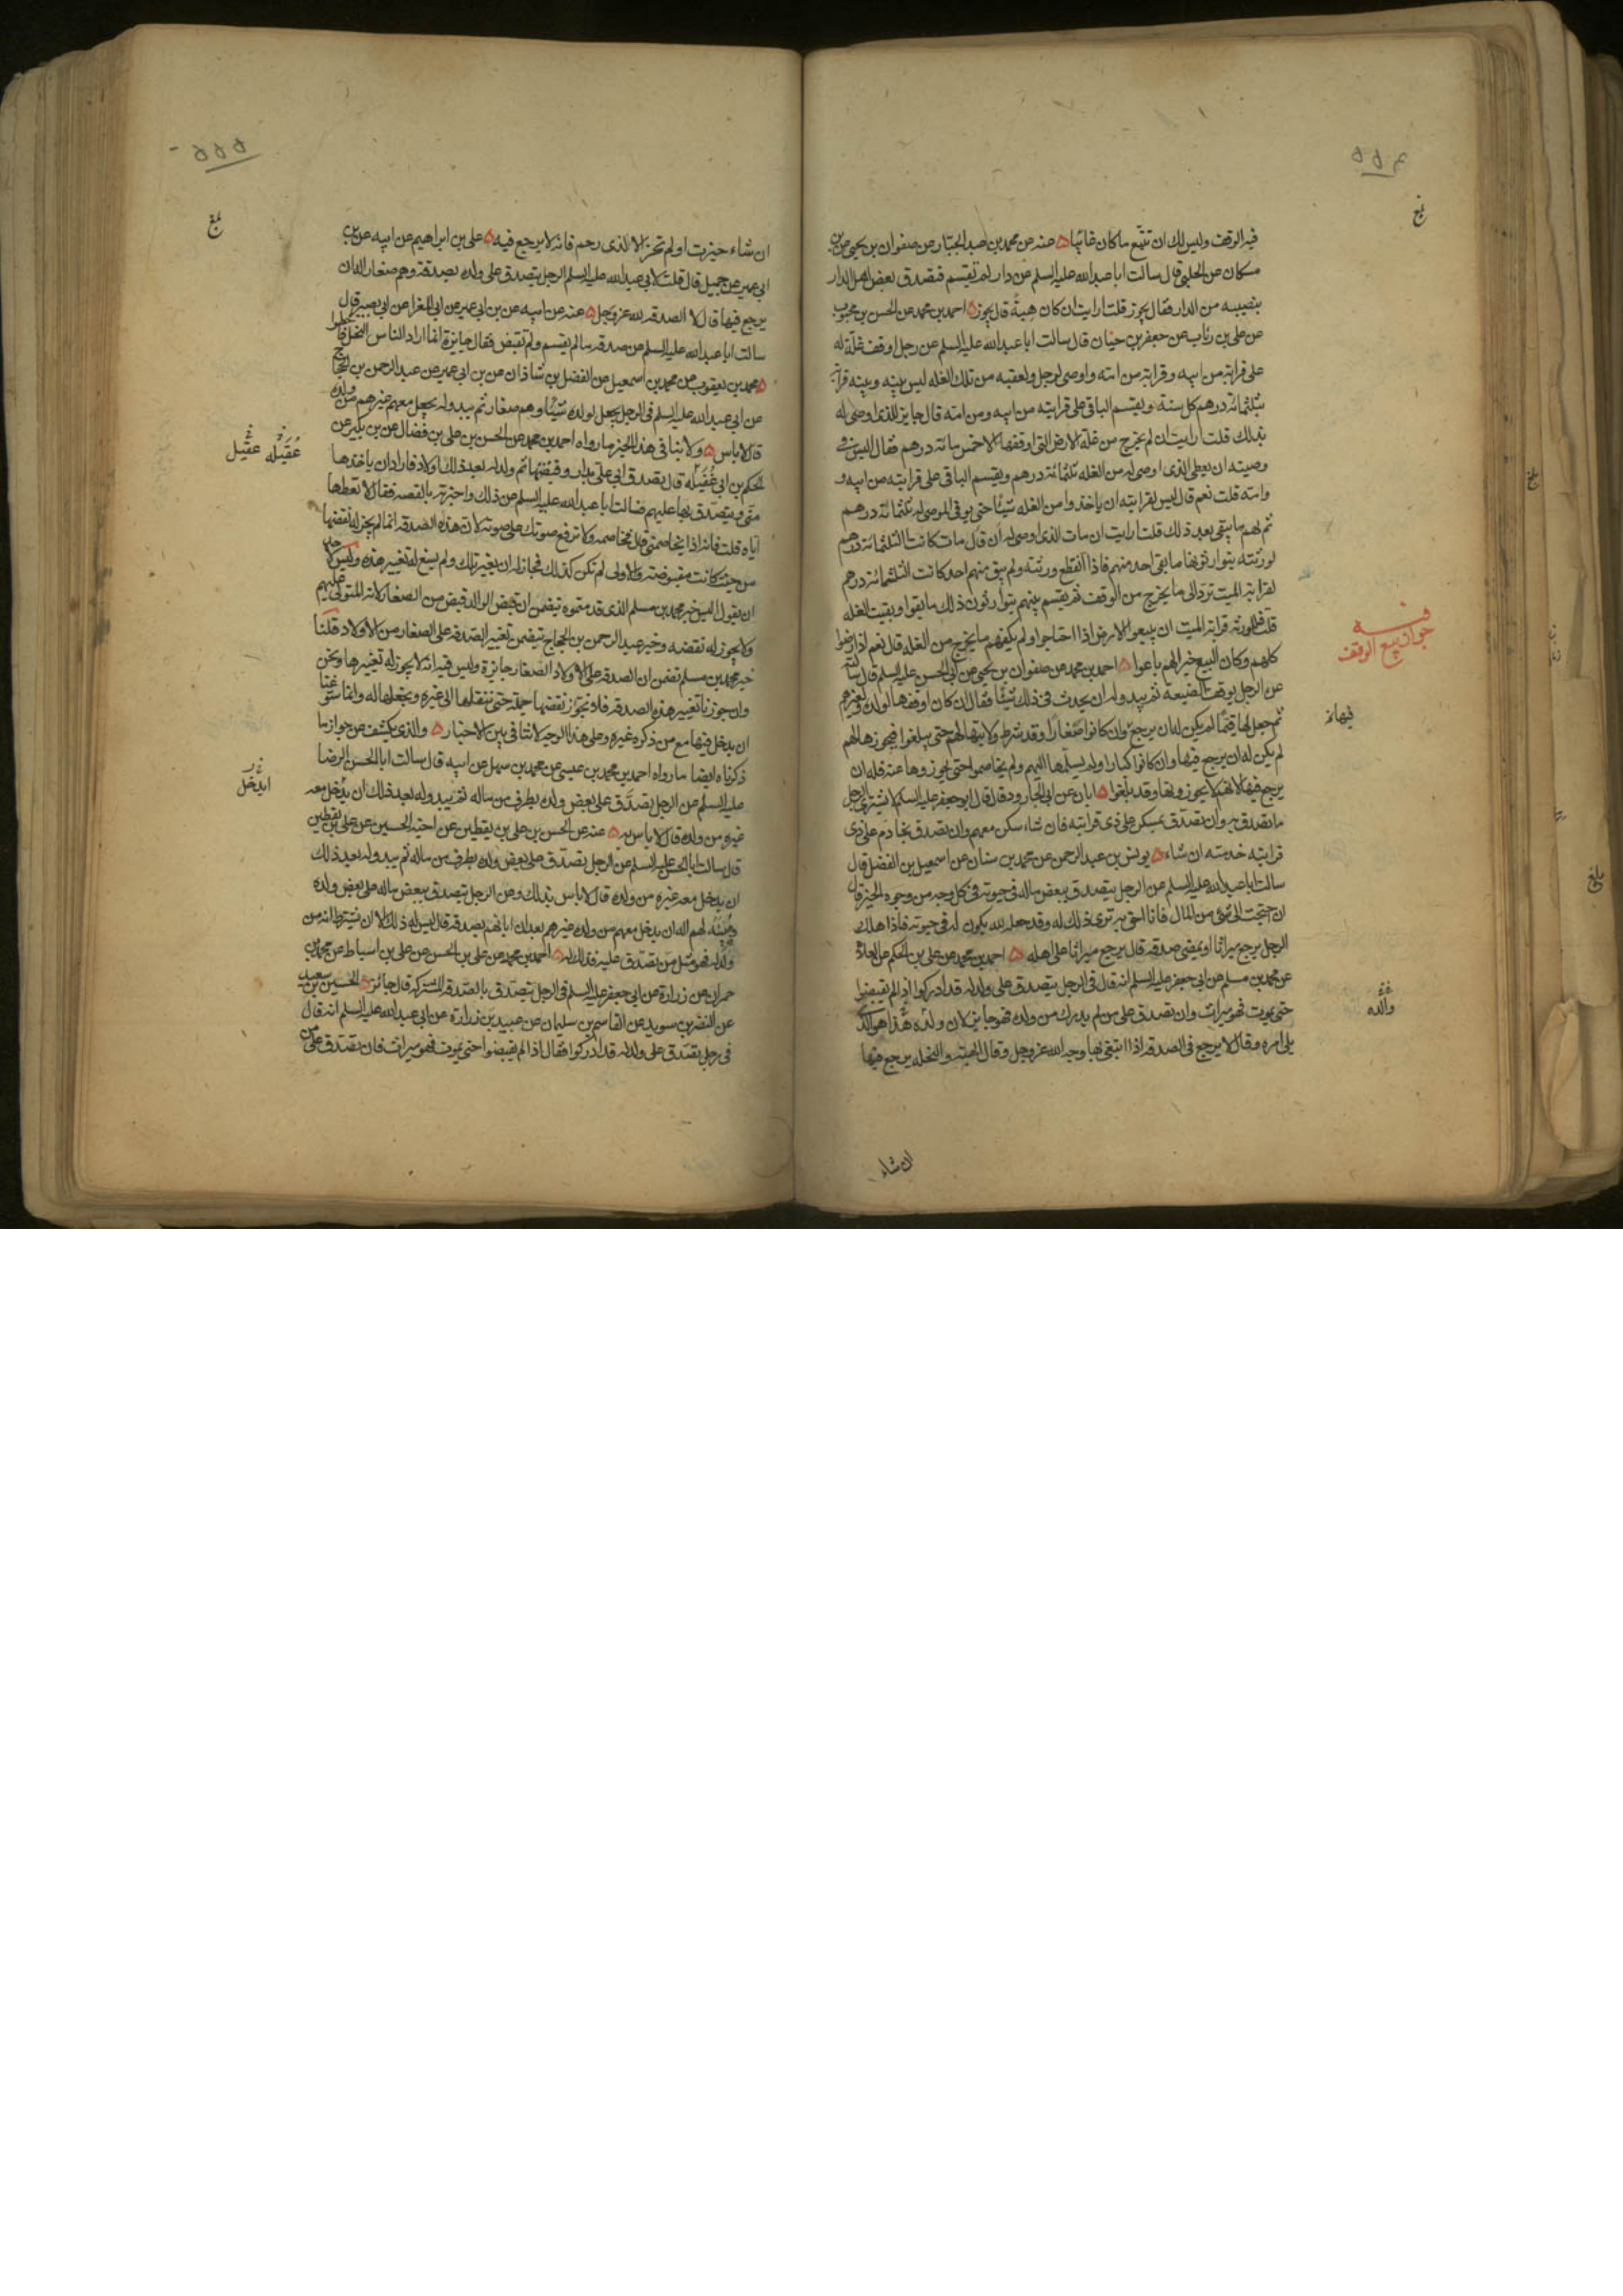 ۵۵۴
فيه الوقف وليس لك ان تتبع ما كان غائبا ۵ عنه عن محمد بن عبد الجبار عن صفوان بن يحيى عن بن
مسكان عن الحلبي قال سالت ابا عبدالله عليه السلم عن دار لم تقسم فتصدق بعض اهل الدار
بنصيبه من الدار فقال يجوز قلت ارايت ان كان هبة قال يجوز ۵ احمد بن محمد عن الحسن بن محبوب
عن علي بن رئاب عن جعفر بن حنان قال سالت ابا عبدالله عليه السلم عن رجل اوقف غلة له
على قرابته من ابيه و قرابته من امه واوصى لرجل ولعقبه من تلك الغله ليس بينه و بينه قرابة
بثلثمائة درهم كل سنة ويقسم الباقي على قرابته من ابيه ومن امه قال جايز للذي اوصى له
بذلك قلت ارايت ان لم يخرج من غلة الارض التي اوقفها الا خمس مائة درهم فقال اليس في
وصيته ان يعطى الذي اوصى له من الغله ثلثمائة درهم ويقسم الباقي على قرابته من ابيه و
وامه قلت نعم قال ليس لقرابته ان ياخذوا من الغله شيئا حتى يوفى الموصى له ثلثمائة درهم
ثم لهم ما يبقى بعد ذلك قلت ارايت ان مات الذي اوصى له قال ان مات كانت الثلثمائة درهم
لورثته يتوارثونها ما بقي احد منهم فاذا انقطع ورثته ولم يبق منهم احد كانت الثلثمائة درهم
لقرابة الميت ترد الى ما يخرج من الوقف ثم يقسم بينهم يتوارثون ذلك ما بقوا وبقيت الغله
قلت فللورثة قرابة الميت ان يبيعوا الارض اذا احتاجوا ولم يكفهم ما يخرج من الغله قال نعم اذا رضوا
كلهم وكان البيع خيرا لهم باعوا ۵ احمد بن محمد عن صفوان بن يحيى عن ابي الحسن عليه السلم قال سالته
عن الرجل يوقف الضيعة ثم يبدو له ان يحدث في ذلك شيئا فقال ان كان اوقفها لولده ولغيرهم
ثم جعل لها قيما لم يكن له ان يرجع وان كانوا صغارا وقد شرط ولايتها لهم حتى يبلغوا فيحوزها لهم
لم يكن له ان يرجع فيها وان كانوا كبارا ولم يسلمها اليهم ولم يخاصموا حتى يحوزوها عنه فله ان
يرجع فيها لانهم لا يحوزونها وقد بلغوا ۵ ابان عن ابي الجارود قال قال ابو جعفر عليه السلم لا يشتري الرجل
ما تصدق به وان تصدق بمسكن على ذي قرابته فان شاء سكن معهم وان تصدق بخادم على ذي
قرابته خدمته ان شاء ۵ يونس بن عبد الرحمن عن محمد بن سنان عن اسمعيل بن الفضل قال
سالت ابا عبدالله عليه السلم عن الرجل يتصدق ببعض ماله في حيوته في كل وجه من وجوه الخير قال
ان احتجت الى شئ من المال فانا احق به ترى ذلك له وقد جعله لله يكون له في حيوته فاذا هلك
الرجل يرجع ميراثا او يمضي صدقه قال يرجع ميراثا على اهله ۵ احمد بن محمد عن علي بن الحكم عن العلاء
عن محمد بن مسلم عن ابي جعفر عليه السلم انه قال في الرجل يتصدق على ولد له قد ادركوا اذا لم يقبضوا
حتى يموت فهو ميراث وان تصدق على من لم يدرك من ولده فهو جايز لان ولده هذا هو الذي
يلي امره وقال لا يرجع في الصدقه اذا ابتغى بها وجه الله عز وجل وقال الهبة والنحله يرجع فيها
ان شاء
جواز بيع الوقف
فيها نه
والده
بلغ
۵۵۵
ان شاء حيزت اولم تحز الا لذي رحم فانه لا يرجع فيه ۵ علي بن ابراهيم عن ابيه عن بن
ابي عمير عن جميل قال قلت لابي عبدالله عليه السلم الرجل يتصدق على ولده بصدقه وهم صغار اله ان
يرجع فيها قال لا الصدقه لله عز وجل ۵ عنه عن ابيه عن بن ابي عمير عن ابي المغرا عن ابي بصير قال
سالت ابا عبدالله عليه السلم عن صدقه ما لم يقسم ولم تقبض فقال جايزة انما اراد الناس النحل فاخطوا
۵ محمد بن يعقوب عن محمد بن اسمعيل عن الفضل بن شاذان عن بن ابي عمير عن عبد الرحمن بن الحجاج
عن ابي عبدالله عليه السلم في الرجل يجعل لولده شيئا وهم صغار ثم يبدو له يجعل معهم غيرهم من ولده
قال لا باس ۵ ولا ينافي هذا الخبر ما رواه احمد بن محمد عن الحسن بن علي بن فضال عن بن بكير عن
الحكم بن ابي غفيله قال تصدق ابي علي بدار وقبضتها ثم ولد له بعد ذلك اولاد فاراد ان ياخذها
مني ويتصدق بها عليهم فسالت ابا عبدالله عليه السلم عن ذلك واخبرته بالقصه فقال لا تعطها
اياه قلت فانه اذا يخاصمني قال فخاصمه ولا ترفع صوتك على صوته لان هذه الصدقه انما لم يجز له نقضها
من حيث كانت مقبوضة والاولى لم تكن كذلك فجاز له ان يغير تلك ولم يسغ له تغيير هذه وليس لاحد
ان يقول اليس خبر محمد بن مسلم الذي قدمتموه تضمن ان قبض الوالد قبض من الصغار لانه المتولي عليهم
ولا يجوز له نقضه وخبر عبد الرحمن بن الحجاج تضمن تغيير الصدقه على الصغار من الاولاد قلنا
خبر محمد بن مسلم تضمن ان الصدقه على الاولاد الصغار جايزة وليس فيه انه لا يجوز له تغييرها ونحن
وان جوزنا تغيير هذه الصدقه فلا نجوز نقضها جملة حتى ننقلها الى غيره ونجعلها له وانما سوغنا
ان يدخل فيها مع من ذكره غيره وعلى هذا الوجه لا تنافي بين الاخبار ۵ والذي يكشف عن جواز ما
ذكرناه ايضا ما رواه احمد بن محمد بن عيسى عن محمد بن سهل عن ابيه قال سالت ابا الحسن الرضا
عليه السلم عن الرجل يتصدق على بعض ولده بطرف من ماله ثم يبدو له بعد ذلك ان يدخل معه
غيره من ولده قال لا باس به ۵ عنه عن الحسن بن علي بن يقطين عن اخيه الحسين عن علي بن يقطين
قال سالت ابا الحسن عليه السلم عن الرجل يتصدق على بعض ولده بطرف من ماله ثم يبدو له بعد ذلك
ان يدخل معه غيره من ولده قال لا باس بذلك وعن الرجل يتصدق ببعض ماله على بعض ولده
ويبينه لهم اله ان يدخل معهم من ولده غيرهم بعد ان ابانهم بصدقه قال ليس له ذلك الا ان يشترط انه من
ولد له فهو مثل من تصدق عليه فذلك له ۵ احمد بن محمد عن علي بن الحسن عن علي بن اسباط عن محمد بن
حمران عن زرارة عن ابي جعفر عليه السلم في الرجل يتصدق بالصدقه المشتركه قال جائز ۵ الحسين بن سعيد
عن النضر بن سويد عن القاسم بن سليمان عن عبيد بن زرارة عن ابي عبدالله عليه السلم انه قال
في رجل تصدق على ولد له قد ادركوا فقال اذا لم يقبضوا حتى يموت فهو ميراث فان تصدق على من
عقيله عقيل
ايدخل